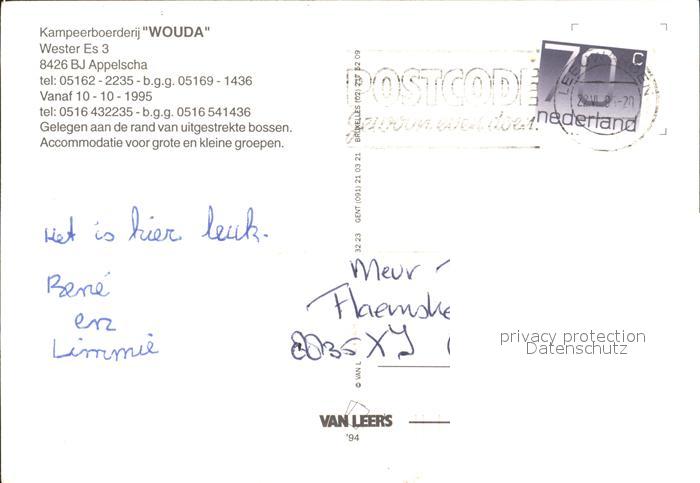 Kampeerboerderij "WOUDA"
Wester Es 3
8426 BJ Appelscha
tel: 05162 - 2235 - b.g.g. 05169 - 1436
Vanaf 10 - 10 - 1995
tel: 0516 432235 - b.g.g. 0516 541436
Gelegen aan de rand van uitgestrekte bossen.
Accommodatie voor grote en kleine groepen.
POSTCODE
gewoon even doen.
70 c
nederland
Het is hier leuk.
René
en
Limmie
Meur
8035 XJ
privacy protection
Datenschutz
© VAN L
32 23 GENT (091) 21 03 21 BRUXELLES (02)
VAN LEER'S
'94